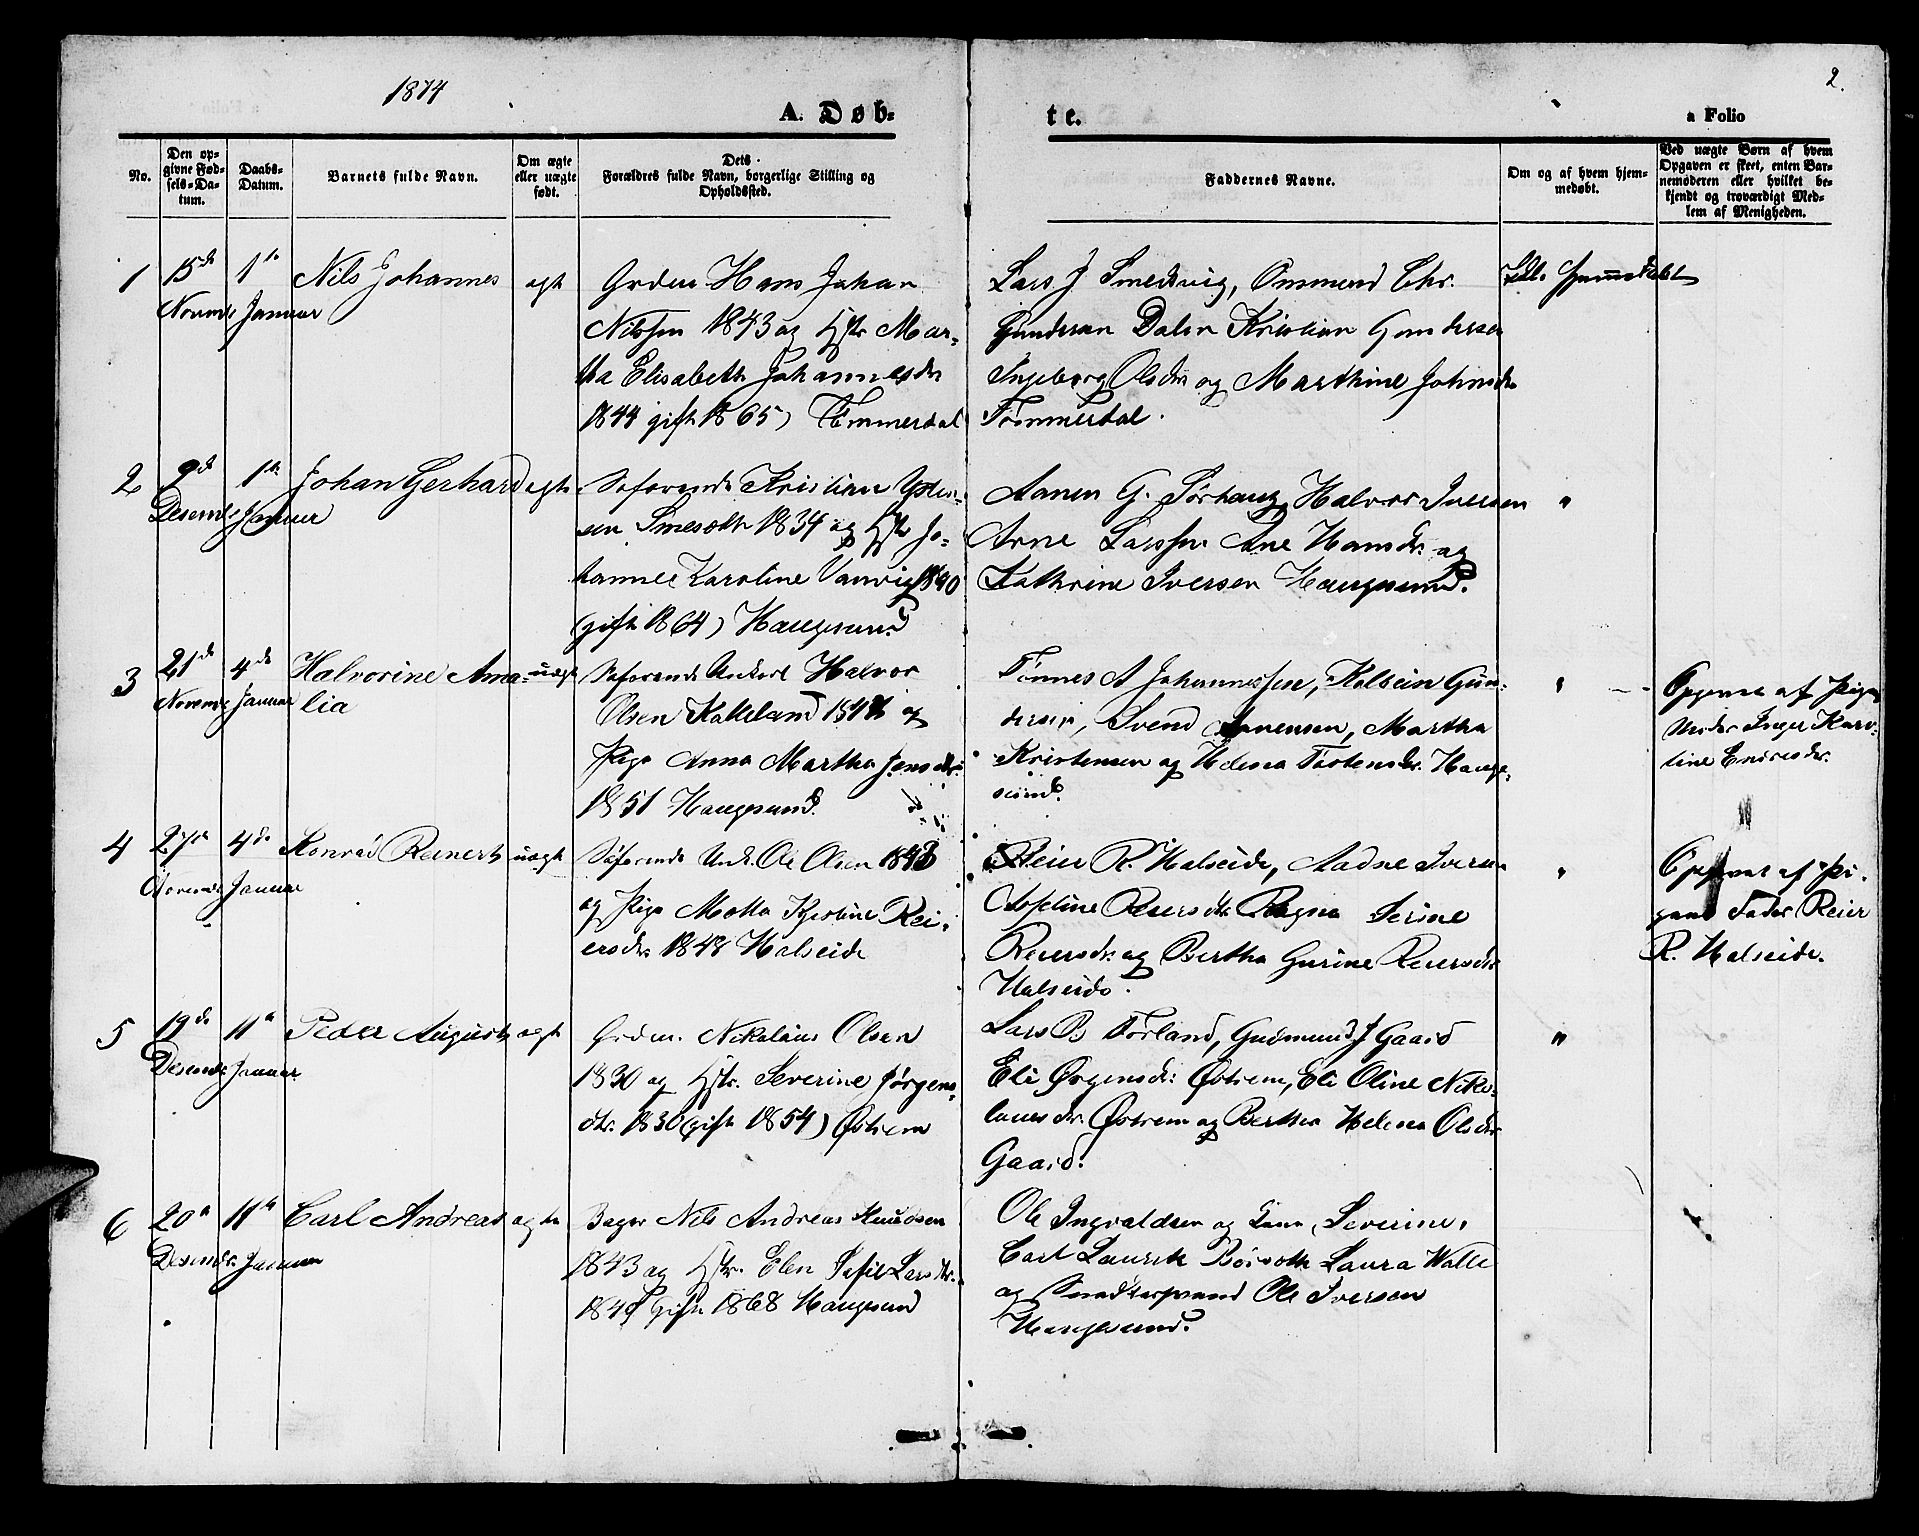 1874
2.
A. Døb-
te.
a Folio
No.
Den op-
givne Fød-
sels-Da-
tum.
Daabs-
Datum.
Barnets fulde Navn.
Om ægte
eller uægte
født.
Dets
Forældres fulde Navn, borgerlige Stilling og
Opholdssted.
Faddernes Navne.
Om og af hvem hjem-
medøbt.
Ved uægte Børn af hvem
Opgaven er skeet, enten Bar-
nemoderen eller hvilket be-
kjendt og troværdigt Med-
lem af Menigheden.
1
15de
Novemb
1te
Januar
Nils Johannes
ægt
Grdm Hans Johan
Nilssen 1843 og Hstr Mar-
tha Elisabeth Johannesdr
1844 gift 1865)
Lars J Smedsvig, Ommund Chr.
Gundersen Dalen Kristian Gundersen
Ingeborg Olsdr og Marthine Johnsdr
Tømmerdal.
Hjemmedøbt
2
9d
Desemb
1te
Januar
Johan Gerhard
ægte
Søfarende Kristian
sen 1834 og Hstr Jo-
hanne Karoline 1840
(gift 1864) Haugesund
G. Halvor Iversen
Arne Larssen Ane Hansdr og
Kathrine Iversen Haugesund.
"
3
21de
Novemb
4de
Januar
Halvorine Ama-
lia
uægt
Søfarende Unkarl Halvor
Olsen Kalleland og
Pige Anna Martha Jensdr.
1851 Haugesund.
Tønnes A Johannessen, Kolbein Gun-
dersen, Svend Sørensen, Martha
Kristensen og Helena Tostensdr. Hauge-
sund.
"
Opgivet af Pigens
Moder Inger Karo-
line Endresdr.
4
27de
Novemb
4de
Januar
Konrad Reinert
uægt
Søfarende Unk. Ole Olsen
og Pige Kjistine Rei-
ersdr. 1848 Halseide
Reier R. Halseide, Aadne Iversen
Reiersdr Ragna Serine
Reiersdr og Bertha Gurine Reiersdr
Halseide.
"
Opgivet af Pi-
gens Fader Reier
R. Halseide.
5
19de
Desemb
11te
Januar
Peder August
ægt
Grdm. Nikolaus Olsen
1830 og Hstr. Severine Jørgens-
dtr. 1830 (gift 1854) Østrem
Lars B Førland, Gudmund J Gaard
Eli Ørgensdr: Østrem, Eli Oline Niko-
lausdr. Østrem og Berthe Helena Olsdr
Gaard.
"
6
20de
Desemb.
11te
Januar
Carl Andreas
ægte
Bager Nils Andreas Knudsen
1843 og Hstr. Elen Sofie Larsdtr.
gift 1868 Haugesund
Ole Ingvaldsen og Severine,
Carl Laurits Laura Walle
og Ole Iversen
Haugesund.